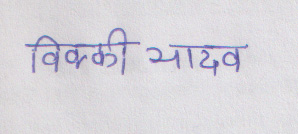 विक्की यादव